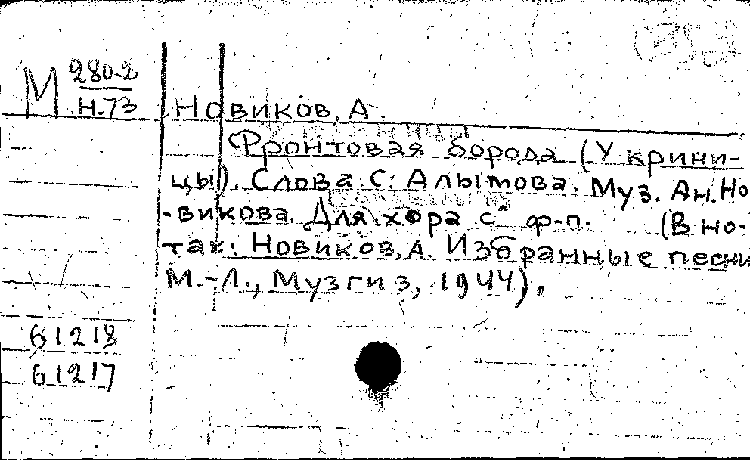 М 280-2
Н.73
Новиков, А.
Фронтовая борода (У крини-
цы). Слова С. Алымова. Муз. Ан. Но
-викова. Для хора с ф-п. (В но-
тах: Новиков, А. Избранные песни
М.-Л., Музгиз, 1944).
61218
61217